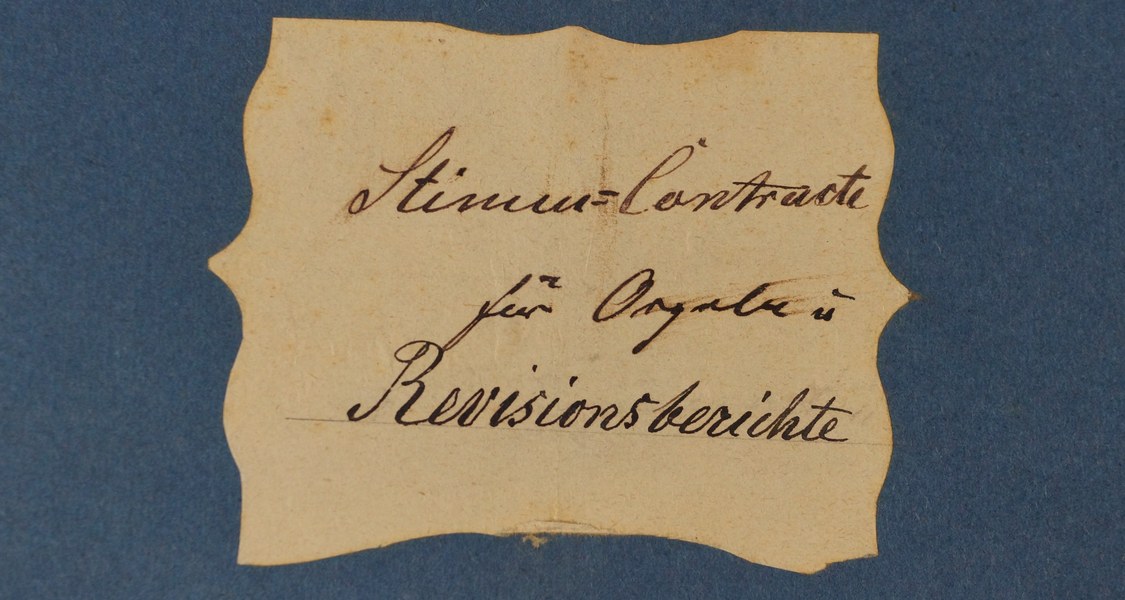 Stimm=Contracte
für Orgeln u
Revisionsberichte